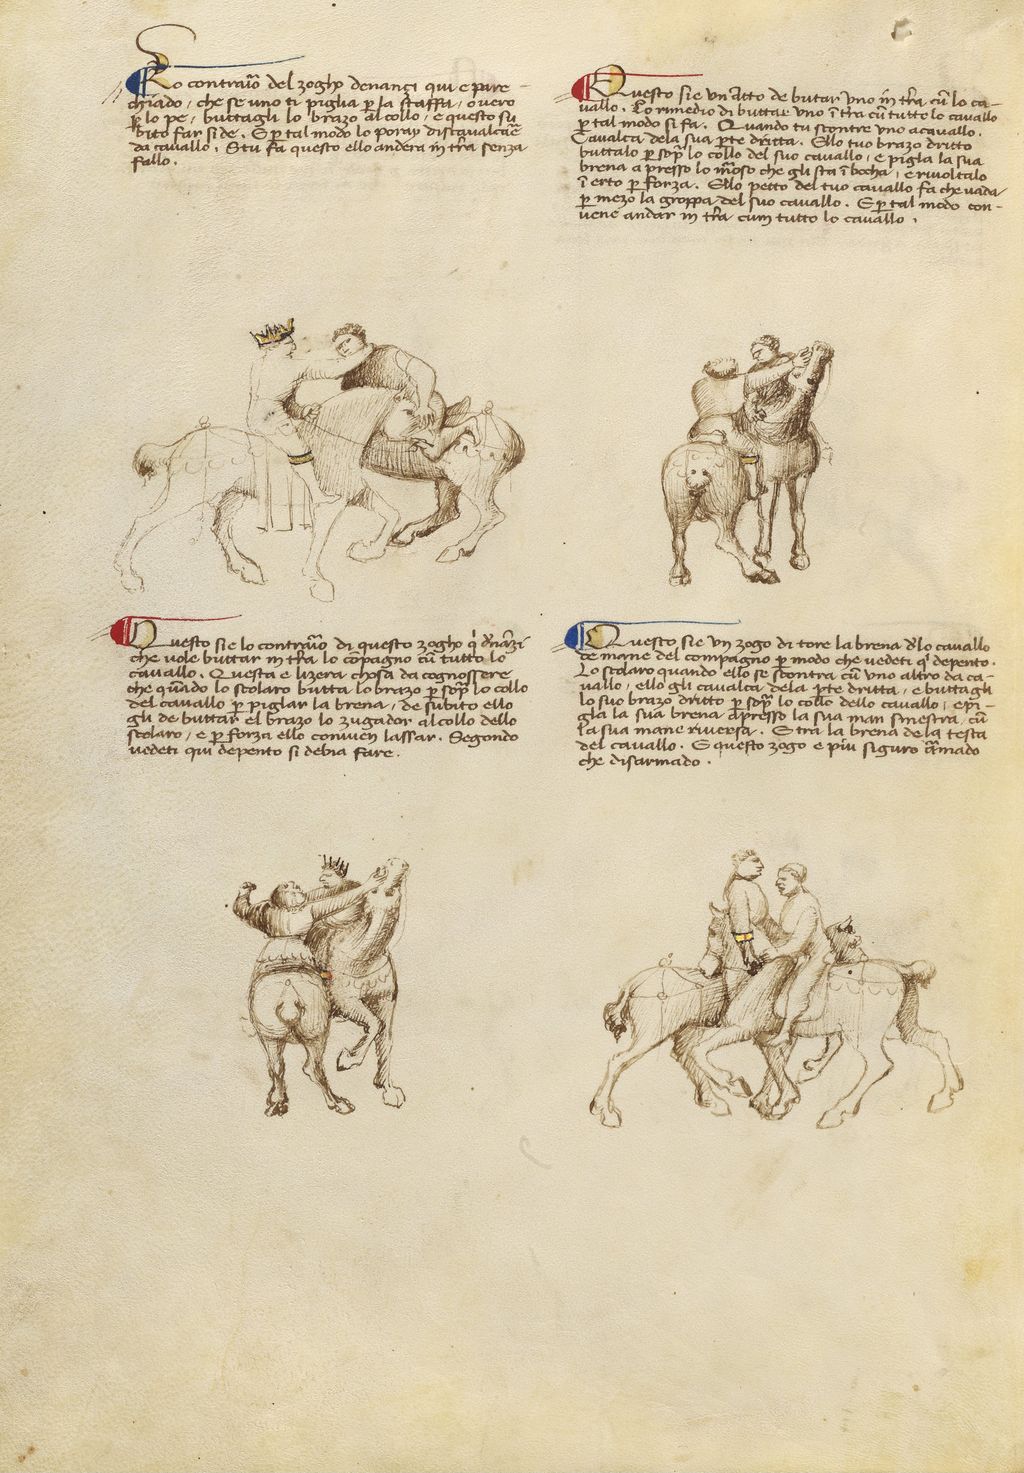 Lo contrario del zoghy denançi qui e pare-
chiado, che se uno ti piglia per la staffa, overo
per lo pe, buttagli lo brazo al collo, e questo su-
bito far si de. E per tal modo lo poray discavalcare
da cavallo. Stu fa questo ello andera in terra senza
fallo.
Questo sie un'atto de butar uno in terra cum lo ca-
vallo. Lo rimedio di buttar uno in terra cum tutto lo cavallo
per tal modo si fa. Quando tu scontre uno a cavallo.
Cavalca dela sua parte dritta. Ello tuo brazo dritto
buttalo per sopra lo collo del suo cavallo, e pigla la sua
brena apresso lo morso che gli sta in bocha, e rivoltalo
in erto per forza. Ello petto del tuo cavallo fa che vada
per mezo la groppa del suo cavallo. E per tal modo con-
vene andar in terra cum tutto lo cavallo.
Questo sie lo contrario di questo zoghy qui dinanzi
che vole buttar in terra lo compagno cum tutto lo
cavallo. Questa e lizera chosa da cognossere
che quando lo scolaro butta lo brazo per sopra lo collo
del cavallo per piglar la brena, de subito ello
gli de buttar el brazo lo zugador al collo dello
scolaro, e per forza ello convien lassar. Segondo
vedeti qui depento si debia fare.
Questo sie un zogo di tore la brena dello cavallo
de mane del compagno per modo che vedeti qui depento.
Lo scolaro quando ello se scontra cum uno altro da ca-
vallo, ello gli cavalca dela parte dritta, e buttagli
lo suo brazo dritto per sopra lo collo dello cavallo, e pi-
gla la sua brena apresso la sua man sinestra, cum
la sua mane riversa. E tra la brena dela testa
del cavallo. E questo zogo e piu siguro armado
che disarmado.